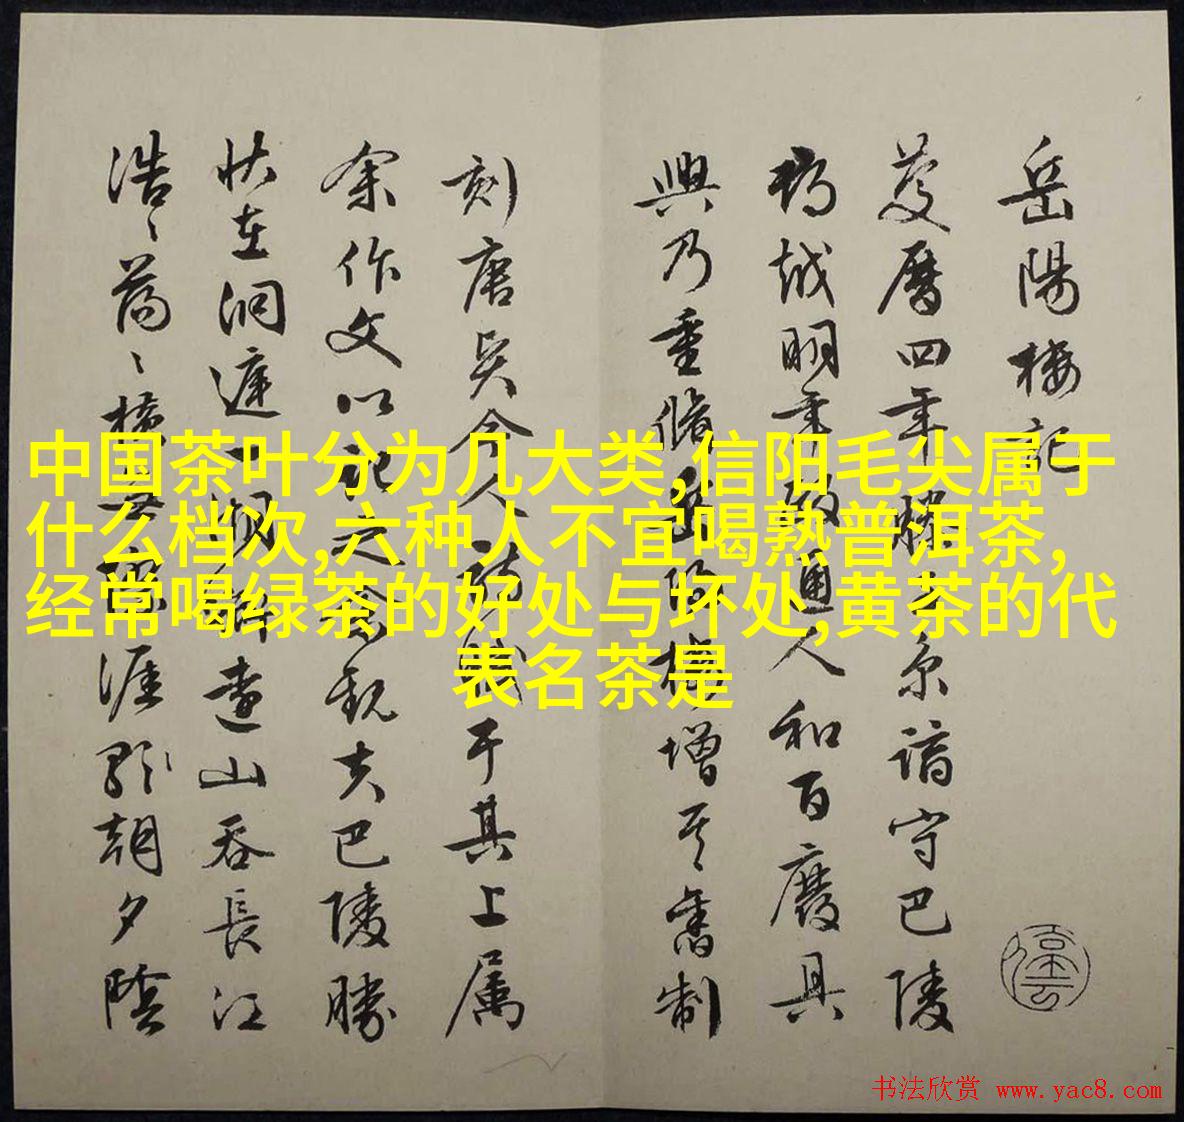 岳陽樓記
慶曆四年滕子京謫守巴陵
郡越明年政通人和百廢具
興乃重脩岳陽樓增其舊制
刻唐吳今人詩賦于其上属
余作文以記之余觀夫巴陵勝
状在洞庭一湖銜遠山吞長江
浩〻蕩〻橫無際涯朝夕陰
中国茶叶分为几大类,信阳毛尖属于
什么档次,六种人不宜喝熟普洱茶,
经常喝绿茶的好处与坏处,黄茶的代
表名茶是
书法欣赏 www.yac8.com